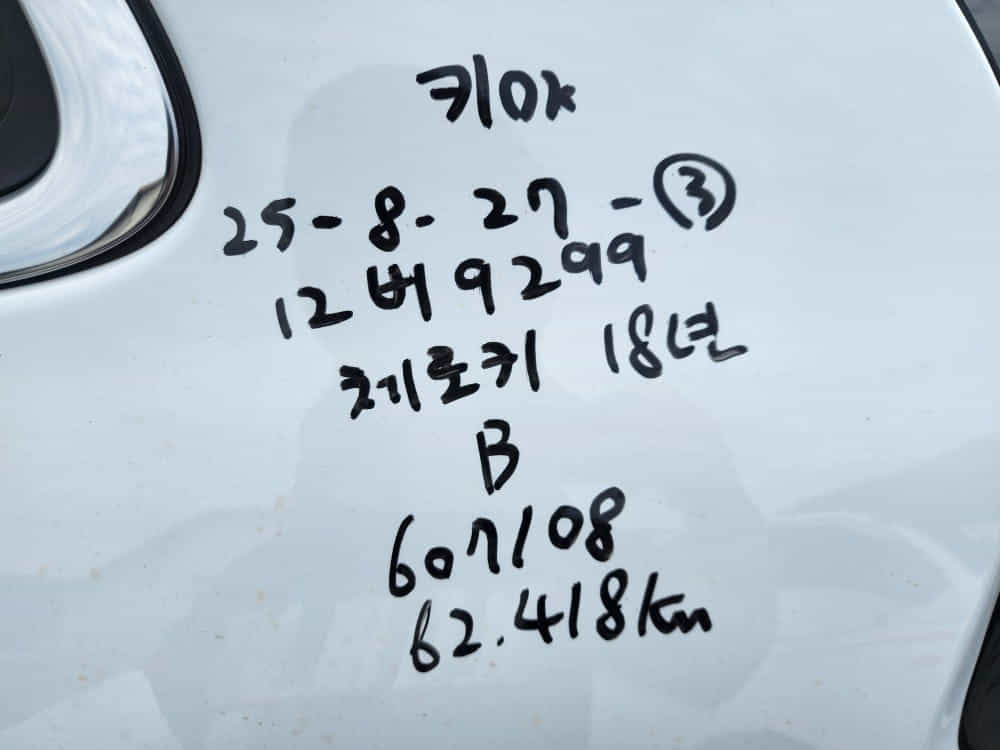 키0x
25-8-27-③
12버9299
체로키 18년
B
607108
62.418km